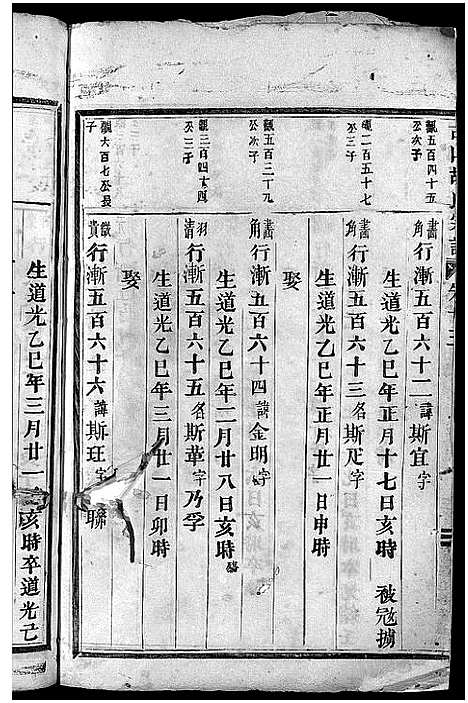 觀五百四十五
公次子
書角行漸五百六十二諱斯宜字
生道光乙巳年正月十七日亥時 被寇擄
觀一百五十七
公三子
書角行漸五百六十三名斯疋字
生道光乙巳年正月廿一日申時
娶
觀五百三十九
公次子
書角行漸五百六十四諱金明字
生道光乙巳年二月廿八日亥時
觀三百四十四
公三子
羽清行漸五百六十五名斯華字乃孚
生道光乙巳年三月廿一日卯時
娶
觀六百七公長
子
徵黃行漸五百六十六諱斯玨字 聯
生道光乙巳年三月廿一 亥時卒道光己